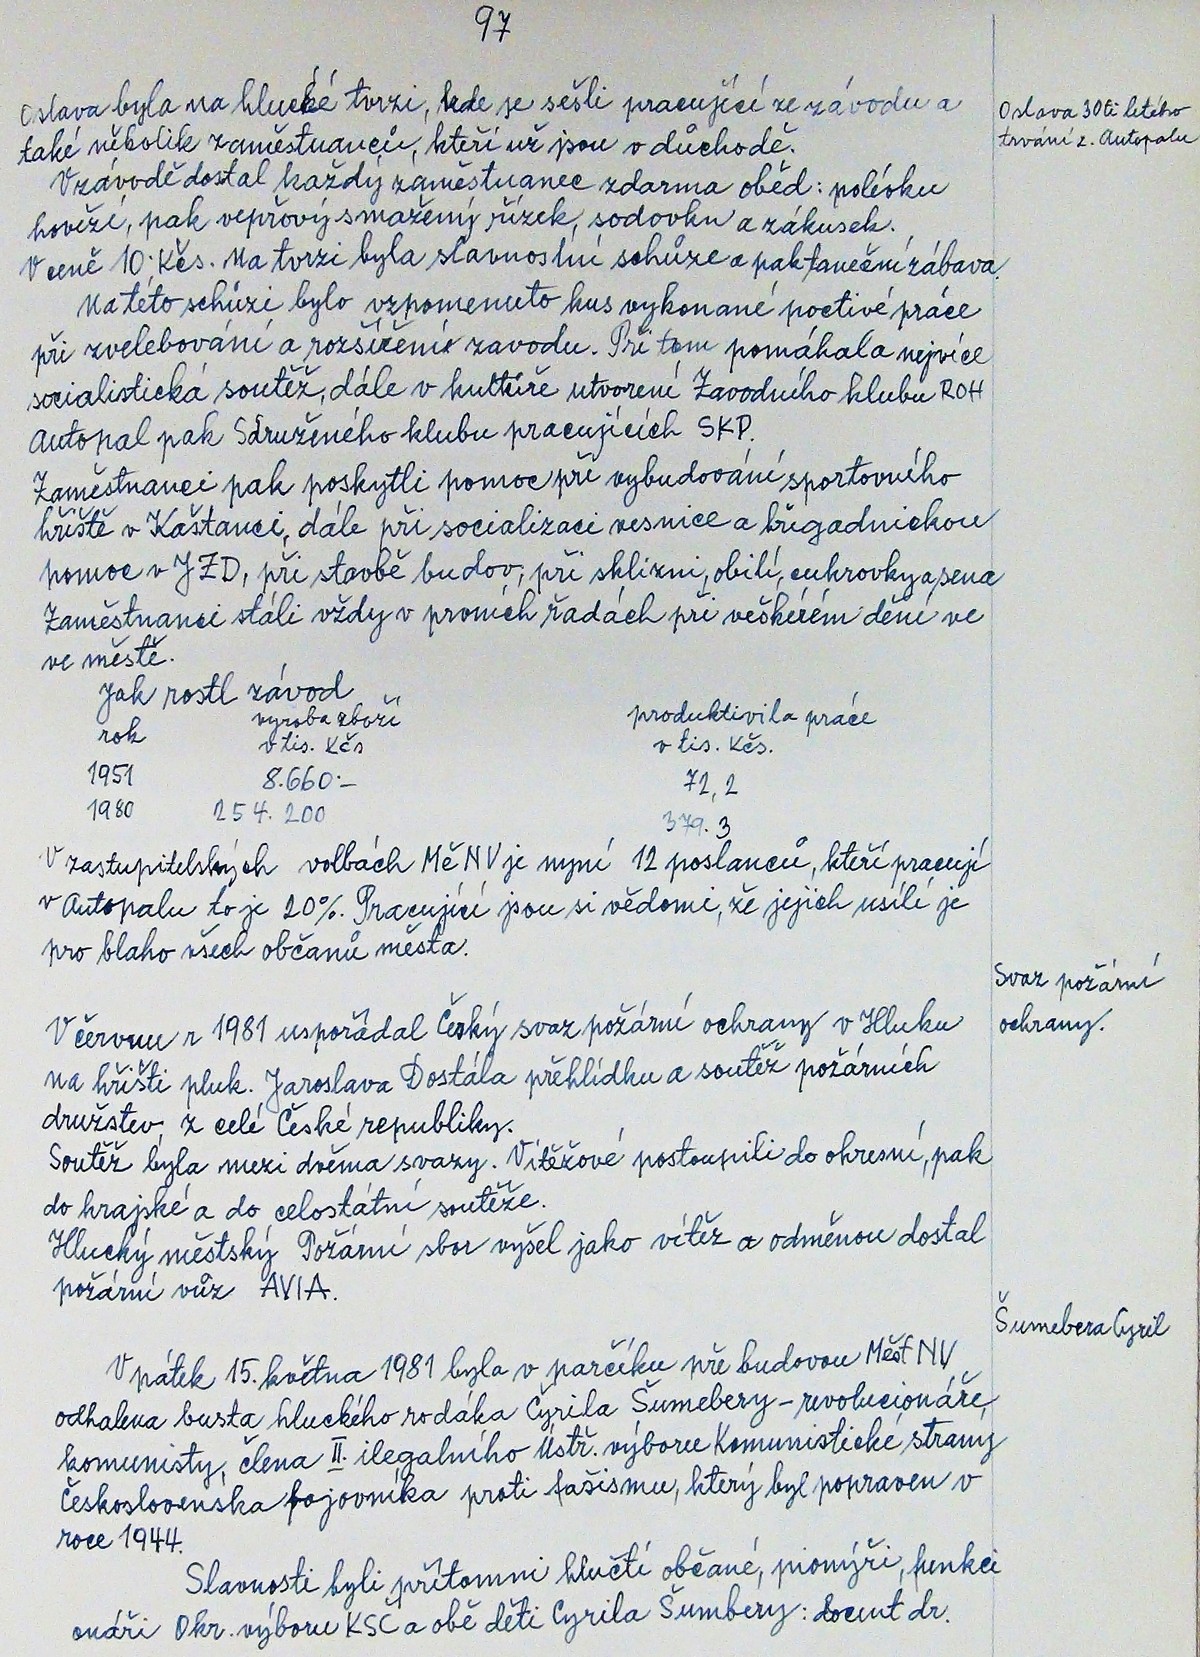 97
Oslava byla na hlucké tvrzi, kde je sešli pracující ze závodu a
také několik zaměstnanců, kteří už jsou v důchodě.
Oslava 30ti letého
trvání z. Autopalu
V závodě dostal každý zaměstnanec zdarma oběd: polévku
hovězí, pak vepřový smažený řízek, sodovku a zákusek.
V ceně 10·Kčs. Na tvrzi byla slavnostní schůze a pak taneční zábava.
Na této schůzi bylo vzpomenuto kus vykonané poctivé práce
při zvelebování a rozšíření zavodu. Při tom pomáhala nejvíce
socialistická soutěž, dále v kultuře utvorení Zavodního klubu ROH
Autopal pak Sdruženého klubu pracujících SKP.
Zaměstnanci pak poskytli pomoc při vybudování sportovního
hřiště v Kaštanci, dále při socializaci vesnice a brigadnickou
pomoc v JZD, při stavbě budov, při sklizni, obilí, cukrovky a sena
Zaměstnanci stáli vždy v prvních řadách při veškérém dění ve
ve městě.
Jak rostl závod
rok výroba zboží produktivita práce
v tis. Kčs v tis. Kčs.
1951 8.660·— 72,2
1980 254.200 379.3
V zastupitelských volbách MěNV je nyní 12 poslanců, kteří pracují
v Autopalu to je 20%. Pracující jsou si vědomi, že jejich usílí je
pro blaho všech občanů města.
Svaz požární
ochrany.
V červnu r 1981 uspořádal Český svaz požární ochrany v Hluku
na hřišti pluk. Jaroslava Dostála přehlídku a soutěž požárních
družstev, z celé České republiky.
Soutěž byla mezi dvěma svazy. Vítězové postoupili do okresní, pak
do krajské a do celostátní soutěže.
Hlucký městský Požární sbor vyšel jako vítěz a odměnou dostal
požární vůz AVIA.
Šumebera Cyril
V pátek 15. května 1981 byla v parčíku pře budovou MěstNV
odhalena busta hluckého rodáka Cyrila Šumebery – revolucionáře,
komunisty, člena II. ilegalního Ústř. výboru Komunistické strany
Československa bojovníka proti fašismu, který byl popraven v
roce 1944.
Slavnosti byli přítomni hlučtí občané, pionýři, funkci
onáři Okr. výboru KSČ a obě děti Cyrila Šumbery: docent dr.